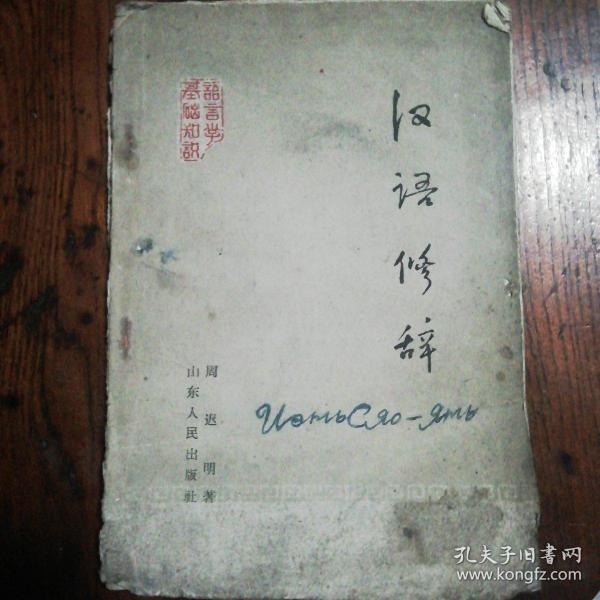 汉语修辞
語言学
基础知識
周迟明著
山东人民出版社
孔夫子旧书网
www.kongfz.com